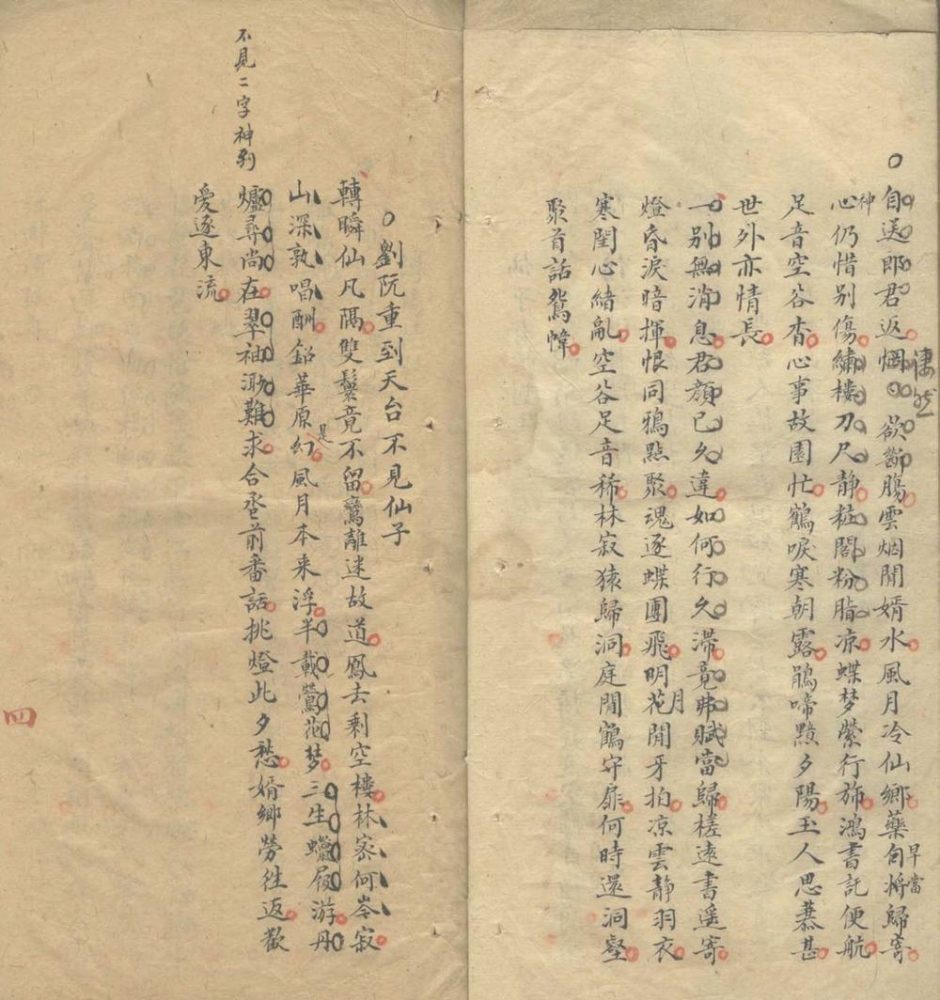 自送郎君返烟○欲斷腸雲烟閒婿水風月冷仙鄉藥句將歸寄
凄然
早當
心仍惜别傷繡樓刀尺静粧閣粉脂凉蝶梦縈行斾鴻書託便航
神
足音空谷杳心事故園忙鶴唳寒朝露鵑啼黯夕陽玉人思慕甚
世外亦情長
一别無消息君顔已久違如何行久滯竟弗賦當歸槎遠書遥寄
燈昏淚暗揮恨同鴉點聚魂逐蝶團飛明花閒牙拍凉雲静羽衣
月
寒閨心緒亂空谷足音稀林寂猿歸洞庭閒鶴守扉何時還洞壑
聚首話鴛幃
○劉阮重到天台不見仙子
轉瞬仙凡隔雙鬟竟不留鸞離迷故道鳳去剩空樓林密何岑寂
山深孰唱酬鉛華原幻風月本来浮半載鶯花梦三生蠟屐游丹
是
爐尋尚在翠袖渺難求合巹前番話挑燈此夕愁婿鄉勞往返歡
愛逐東流
不見二字神到
四